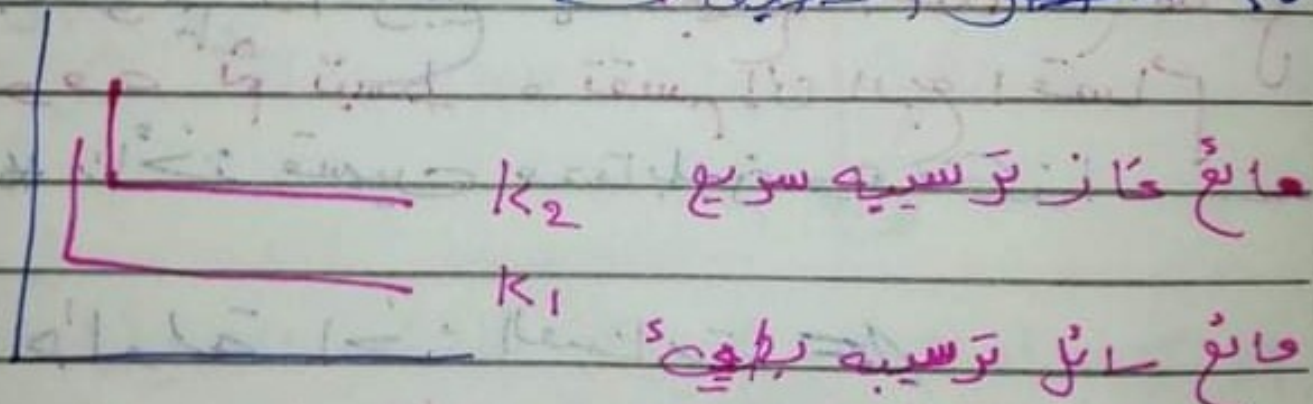 K2 مائع غاز ترسيبه سريع
K1
مائع سائل ترسيبه بطيء